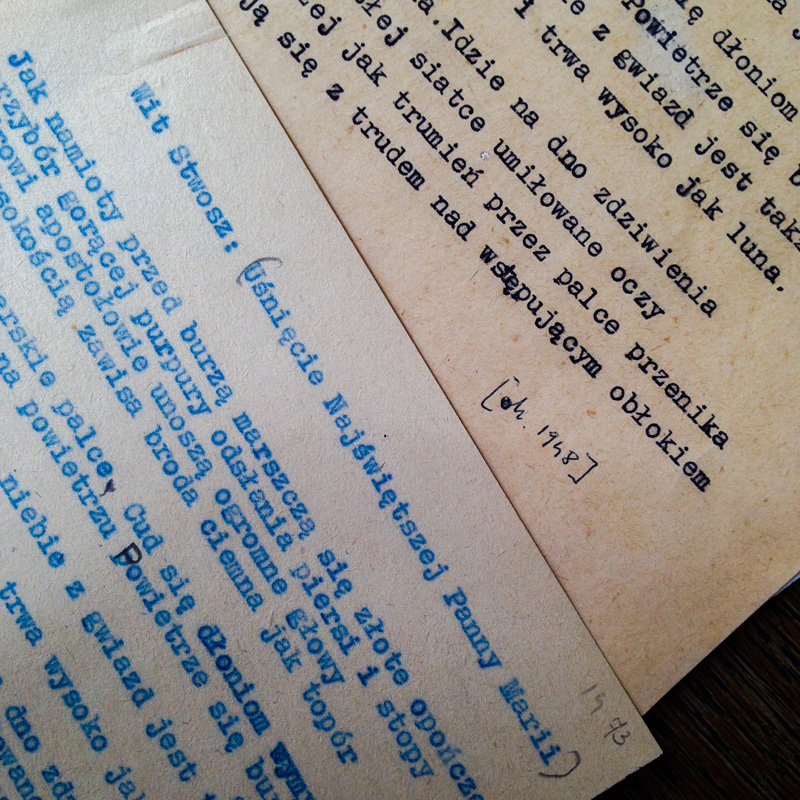 Wit Stwosz: (Uśnięcie Najświętszej Panny Marii)
Jak namioty przed burzą marszczą się złote opończ
rzybór gorącej purpury odsłania piersi i stopy
rowi apostołowie unoszą ogromne głowy
sokością zawisa broda ciemna jak topór
erskie palce, Cud się dłoniom wym
na powietrzu Powietrze się bu
niebie z gwiazd jest
trwa wysoko ja
dno zd
19 73
ię dłoniom
Powietrze się
ie z gwiazd jest takż
i trwa wysoko jak luna.
Idzie na dno zdziwienia
łej siatce umiłowane oczy
zej jak trumień przez palce przenika
ją się z trudem nad wstępującym obłokiem
[ok. 1948]